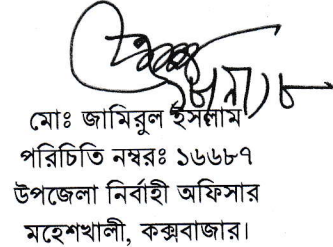 মোঃ জামিরুল ইসলাম
পরিচিতি নম্বরঃ ১৬৬৮৭
উপজেলা নির্বাহী অফিসার
মহেশখালী, কক্সবাজার।